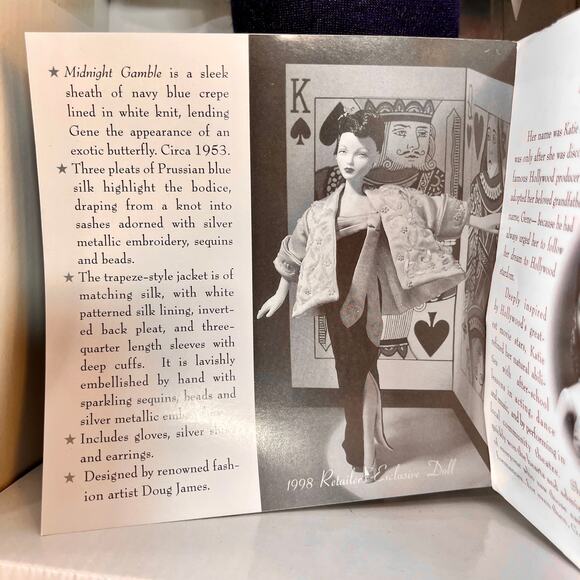 ★ Midnight Gamble is a sleek
sheath of navy blue crepe
lined in white knit, lending
Gene the appearance of an
exotic butterfly. Circa 1953.
★ Three pleats of Prussian blue
silk highlight the bodice,
draping from a knot into
sashes adorned with silver
metallic embroidery, sequins
and beads.
★ The trapeze-style jacket is of
matching silk, with white
patterned silk lining, invert-
ed back pleat, and three-
quarter length sleeves with
deep cuffs. It is lavishly
embellished by hand with
sparkling sequins, beads and
silver metallic
★ Includes gloves, silver
and earrings.
★ Designed by renowned fash-
ion artist Doug James.
K
1998 Retailer's Exclusive Doll
Her name was
was only after she was
famous Hollywood producer
adopted her beloved
name, Gene— because he had
always urged her to follow
her dream to Hollywood
stardom.
Deeply inspired
by Hollywood's great-
movie stars, Katie
her natural
with after-school
in acting, dance
and by performing in
community theatre